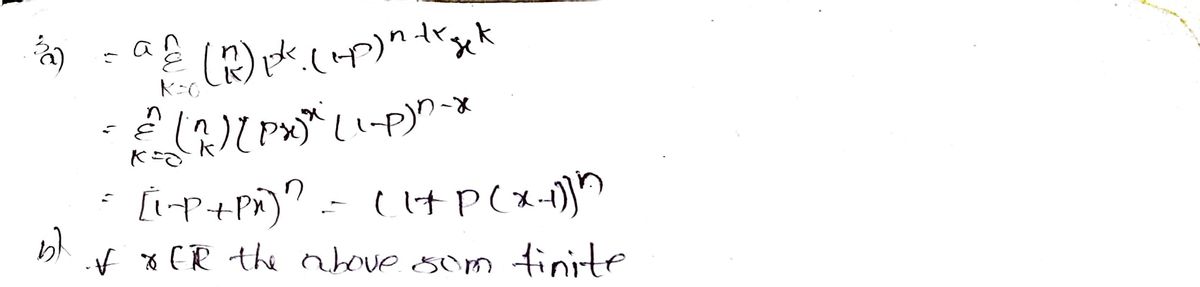 3a) = a n Σ K=0 (n K) pk.(1-p)n-k xk
= n Σ K=0 (n K) (px)x (1-p)n-x
= [1-p+px)n = (1+p(x-1)]n
b) if x ER the above som finite